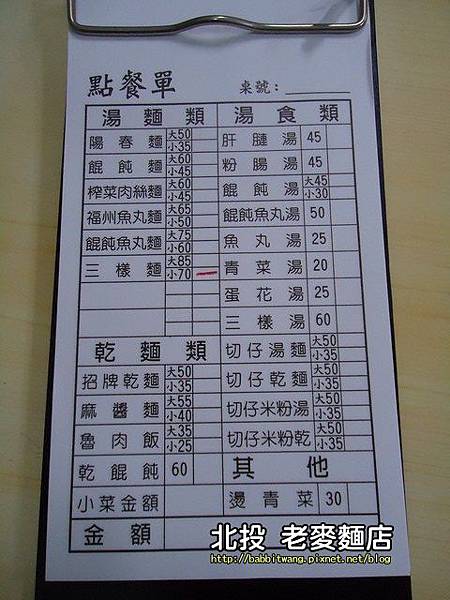 點餐單 桌號：
湯麵類 湯食類
陽春麵 大50 小35 肝腱湯 45
餛飩麵 大60 小45 粉腸湯 45
榨菜肉絲麵 大60 小45 餛飩湯 大45 小30
福州魚丸麵 大65 小50 餛飩魚丸湯 50
餛飩魚丸麵 大75 小60 魚丸湯 25
三樣麵 大85 小70 青菜湯 20
蛋花湯 25
三樣湯 60
乾麵類 切仔湯麵 大50 小35
招牌乾麵 大50 小35 切仔乾麵 大50 小35
麻醬麵 大55 小40 切仔米粉湯 大50 小35
魯肉飯 大35 小25 切仔米粉乾 大50 小35
乾餛飩 60 其他
小菜金額 燙青菜 30
金額
北投 老麥麵店
http://babbitwang.pixnet.net/blog